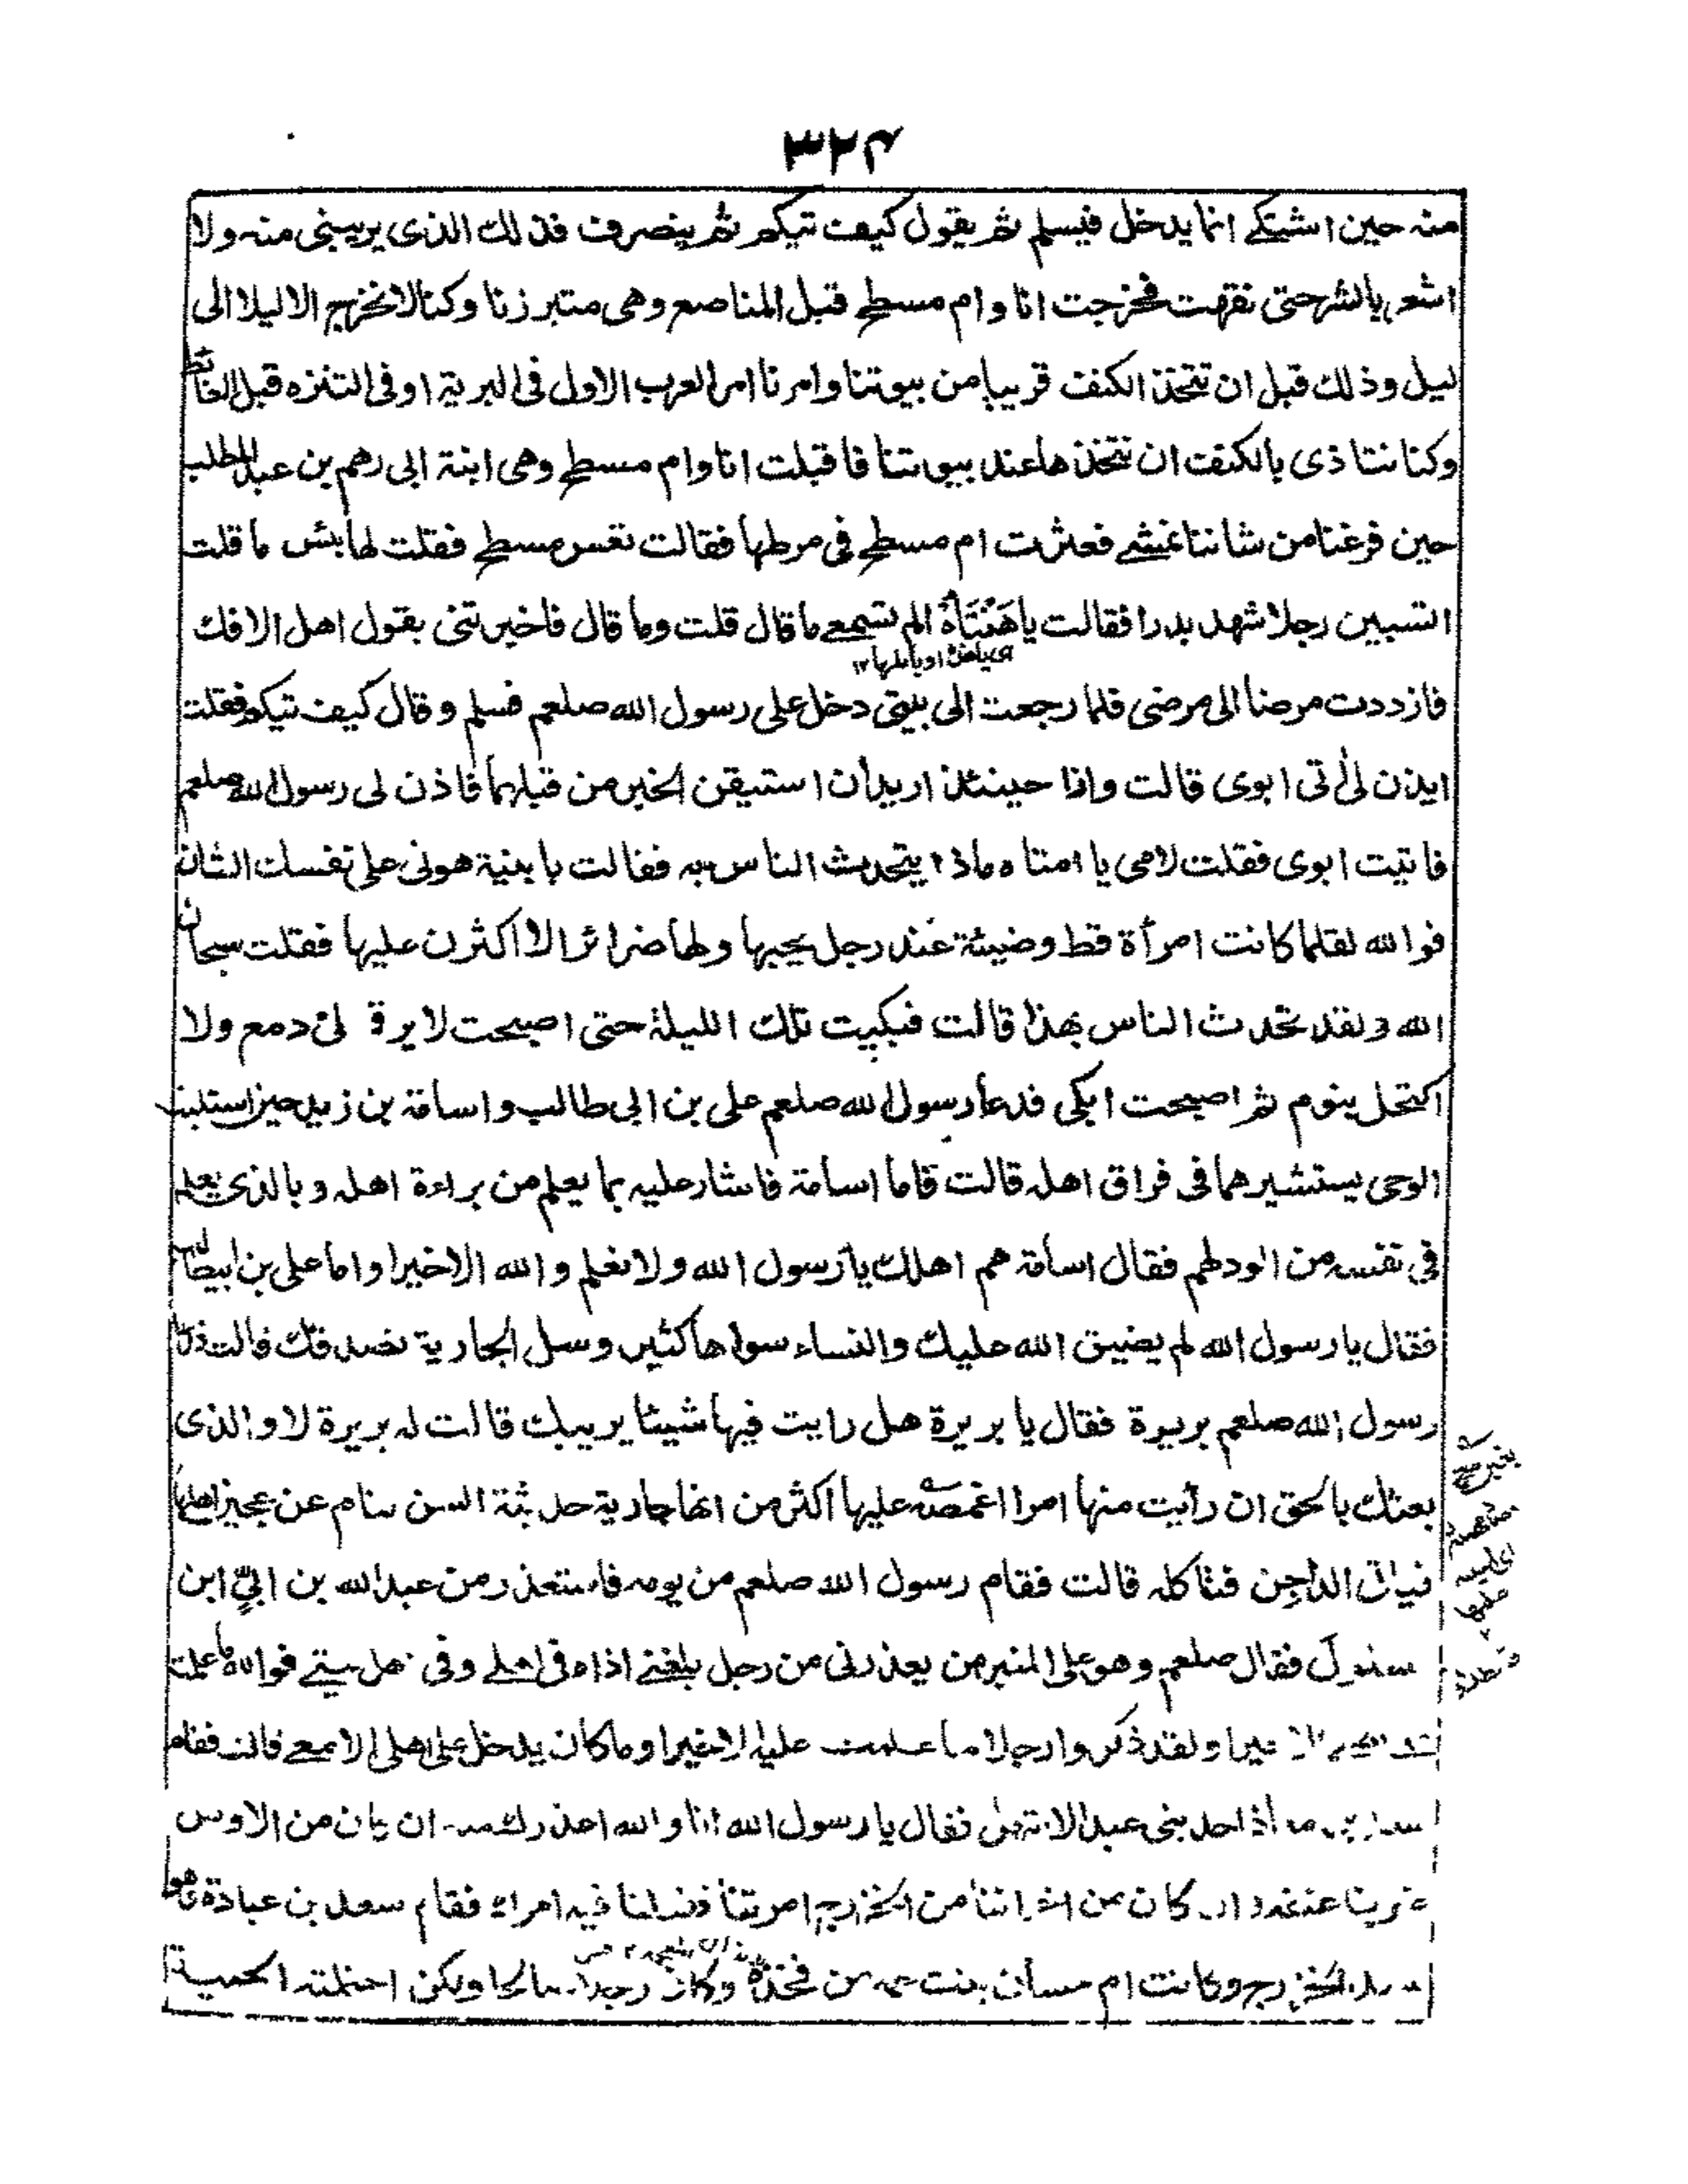 ۳۲۴
منه حين اشتكے انما يدخل فيسلم ثم يقول كيف تيكم ثم ينصرف فذلك الذى يريبنى منه ولا
اشعر بالشر حتى نقهت فخرجت انا وام مسطح قبل المناصع وهى متبرزنا وكنا لا نخرج الا ليلا الى
ليل وذلك قبل ان نتخذ الكنف قريبا من بيوتنا وامرنا امر العرب الاول فى البرية او فى التنزه قبل الغائط
وكنا نتاذى بالكنف ان نتخذها عند بيوتنا فاقبلت انا وام مسطح وهى ابنة ابى رهم بن عبد المطلب
حين فرغنا من شاننا نمشے فعثرت ام مسطح فى مرطها فقالت تعس مسطح فقلت لها بئس ما قلت
اتسبين رجلا شهد بدرا فقالت يا هَنْتَاهْ الم تسمعے ما قال قلت وما قال فاخبرتنى بقول اهل الافك
فازددت مرضا الى مرضى فلما رجعت الى بيتى دخل على رسول الله صلعم فسلم وقال كيف تيكم فقلت
ايذن لى اٰتى ابوى قالت وانا حينئذ اريد أن استيقن الخبر من قبلهما فاذن لى رسول الله صلعم
فاتيت ابوى فقلت لامى يا امتاه ماذا يتحدث الناس به فقالت يا بنية هونى على نفسك الشان
فوالله لقلما كانت امرأة قط وضيئة عند رجل يحبها ولها ضرائر الا اكثرن عليها فقلت سبحان
الله ولقد تحدث الناس بهذا قالت فبكيت تلك الليلة حتى اصبحت لا يرق لى دمع ولا
اكتحل بنوم ثم اصبحت ابكى فدعا رسول الله صلعم على بن ابى طالب واسامة بن زيد حين استلبث
الوحى يستشيرهما فى فراق اهله قالت فاما اسامة فاشار عليه بما يعلم من براءة اهله وبالذى يعلم
فى نفسه من الود لهم فقال اسامة هم اهلك يا رسول الله ولا نعلم والله الا خيرا واما على بن ابيطالب
فقال يا رسول الله لم يضيق الله عليك والنساء سواها كثير وسل الجارية تصدقك قالت فدعا
رسول الله صلعم بريرة فقال يا بريرة هل رايت فيها شيئا يريبك قالت له بريرة لا والذى
بعثك بالحق ان رأيت منها امرا اغمصه عليها اكثر من انها جارية حديثة السن تنام عن عجين اهلها
فياتى الداجن فتاكله قالت فقام رسول الله صلعم من يومه فاستعذر من عبد الله بن ابىٍّ ابن
سلول فقال صلعم وهو على المنبر من يعذرنى من رجل بلغنے اذاه فى اهلے وفى اهل بيتے فوالله ما علمت
خيرا ولقد ذكروا رجلا ما علمت عليه الا خيرا وما كان يدخل على اهلى الا معے قالت فقام
سعد بن معاذ احد بنى عبد الاشهل فقال يا رسول الله انا والله اعذرك منه ان كان من الاوس
ضربنا عنقه وان كان من اخواننا من الخزرج امرتنا ففعلنا فيه امرك فقام سعد بن عبادة وهو
سيد الخزرج وكانت ام حسان بنت عمه من فخذه وكان رجلا صالحا ولكن احتملته الحمية